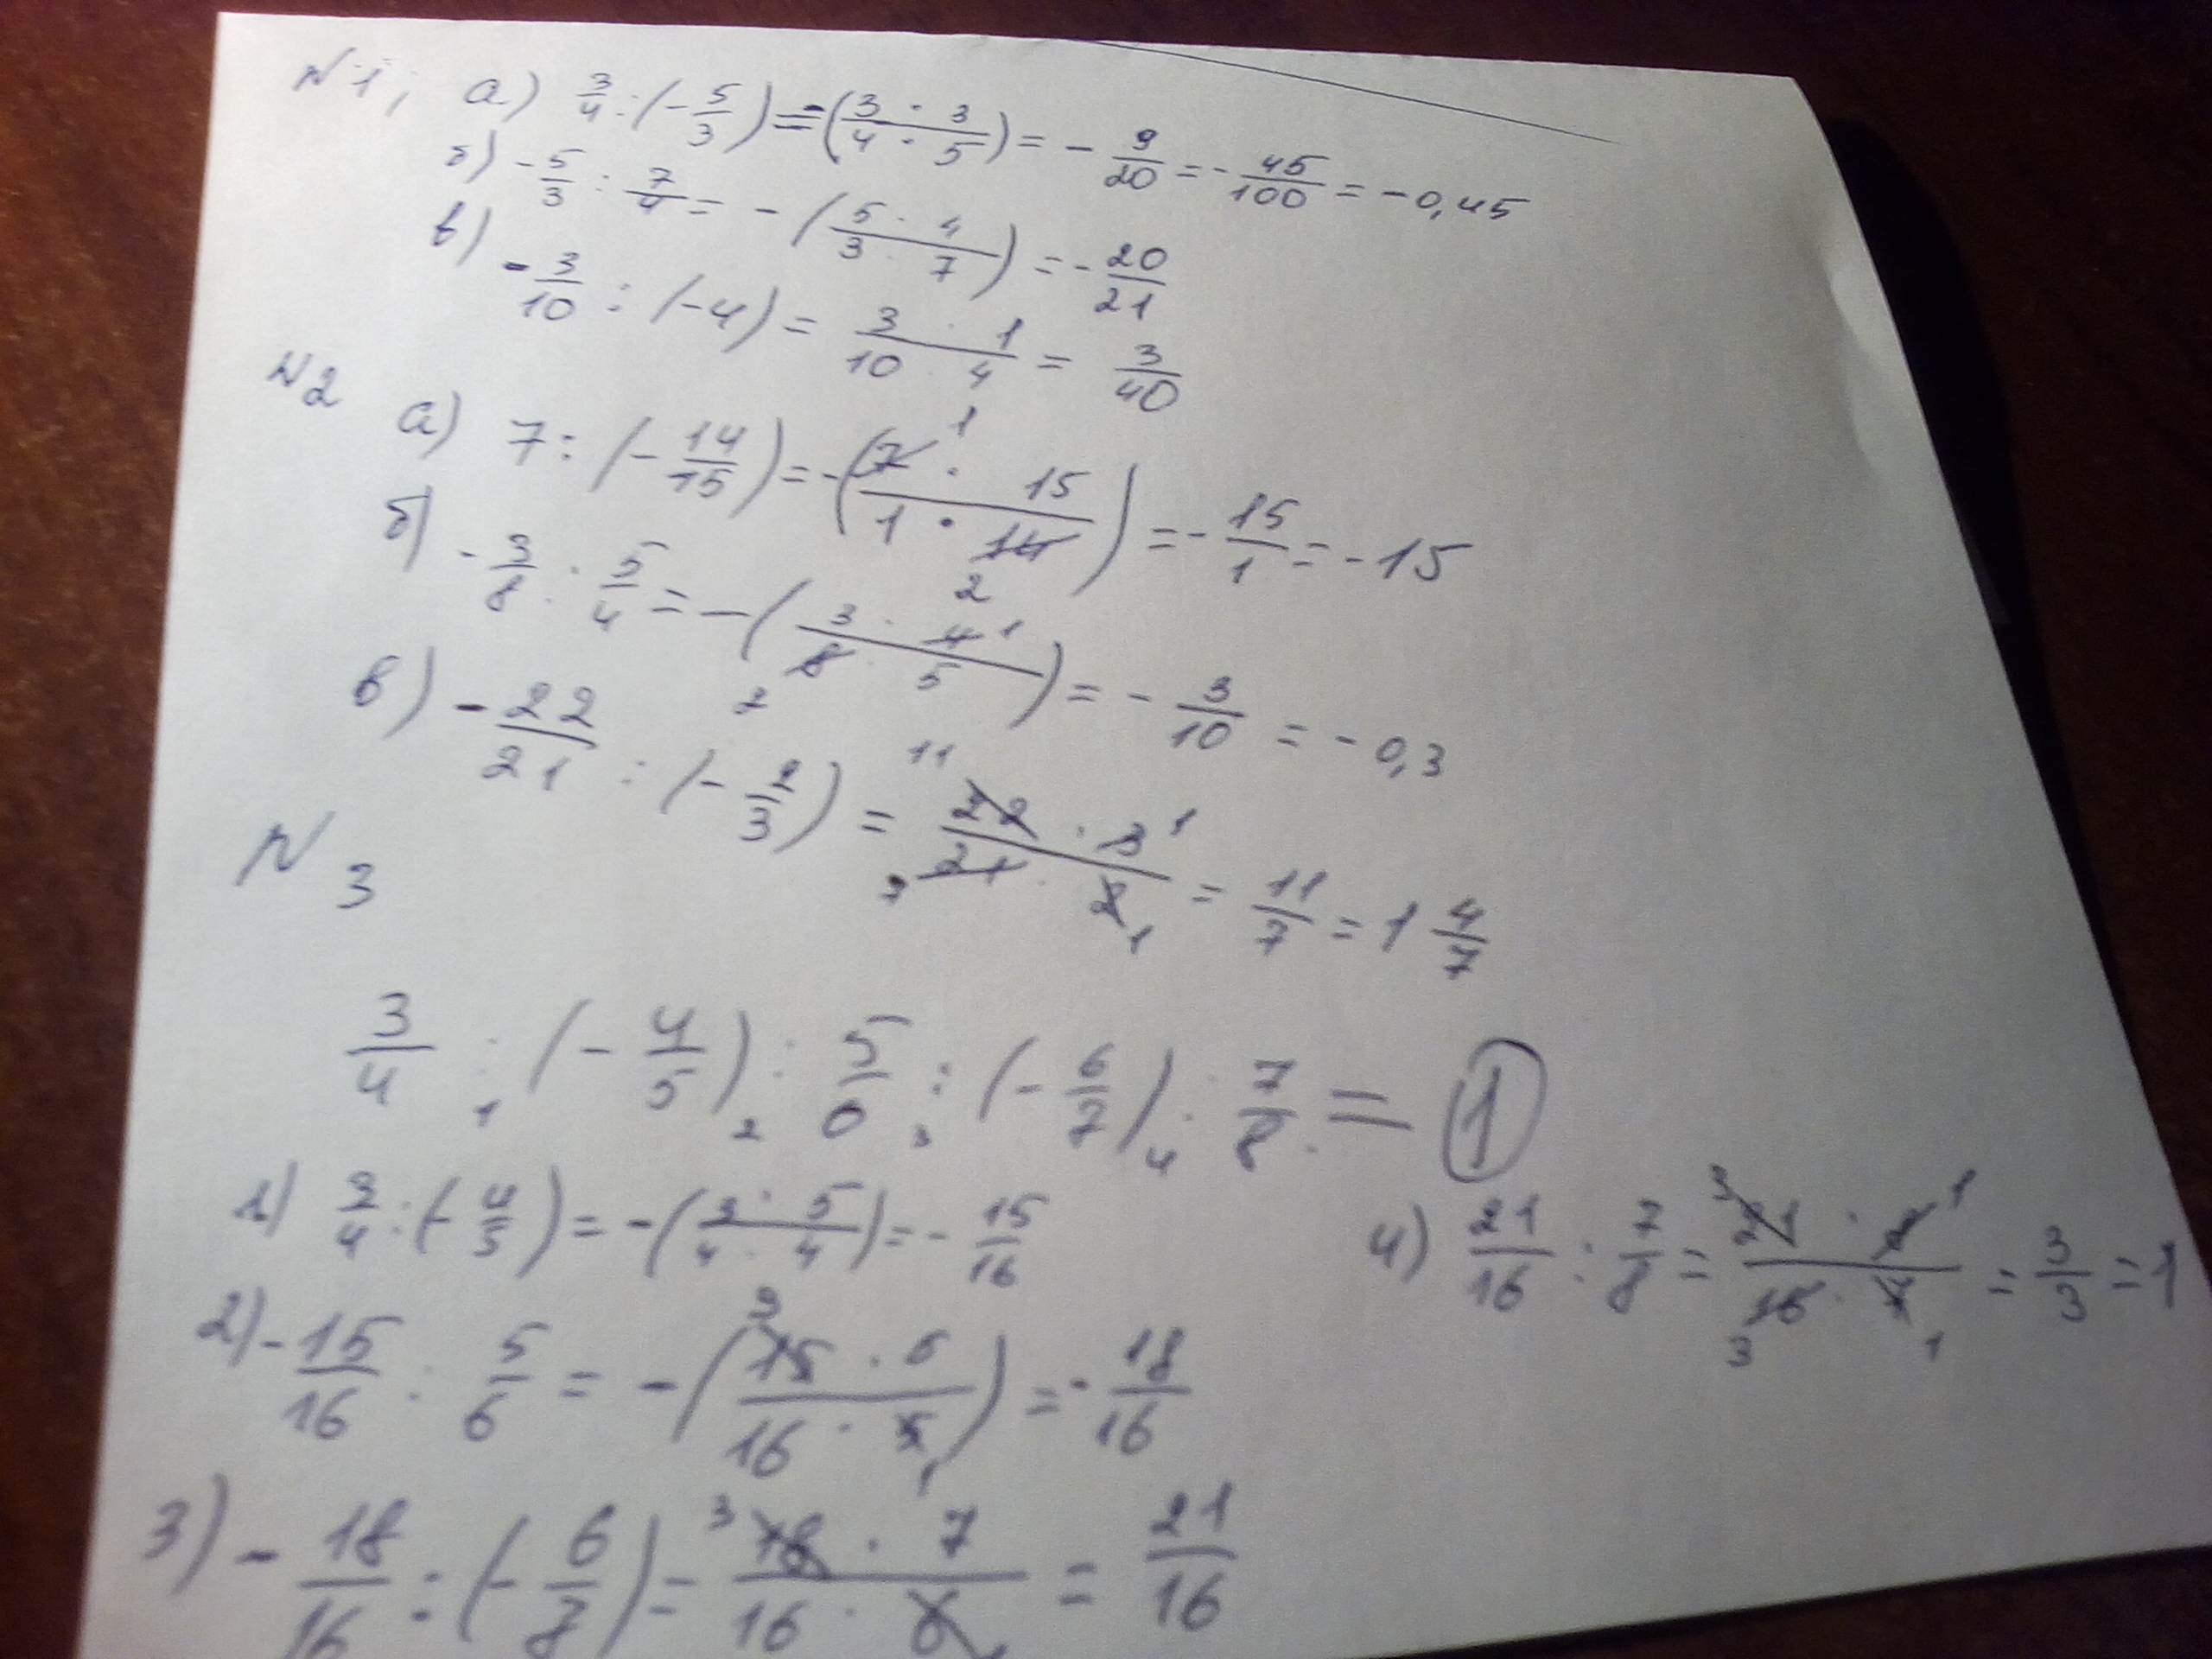 N1, а) 3/4 : (-5/3) = -(3 · 3 / 4 · 5) = - 9/20 = - 45/100 = - 0,45
б) - 5/3 : 7/4 = - (5 · 4 / 3 · 7) = - 20/21
в) - 3/10 : (-4) = 3 · 1 / 10 · 4 = 3/40
N2 а) 7 : (- 14/15) = -(7 1 · 15 / 1 · 14 2) = - 15/1 = - 15
б) - 3/8 : 5/4 = - (3 · 4 1 / 8 2 · 5) = - 3/10 = - 0,3
в) - 22/21 : (- 2/3) = 11 22 · 3 1 / 7 21 · 2 1 = 11/7 = 1 4/7
N 3
3/4 :1 (- 4/5) :2 5/6 :3 (- 6/7) :4 7/8 = 1
1) 3/4 : (- 4/5) = - (3 · 5 / 4 · 4) = - 15/16
2) - 15/16 : 5/6 = - (3 15 · 6 / 16 · 5 1) = - 18/16
3) - 18/16 : (- 6/7) = 3 18 · 7 / 16 · 6 = 21/16
4) 21/16 : 7/8 = 3 21 · 8 1 / 3 16 · 7 1 = 3/3 = 1